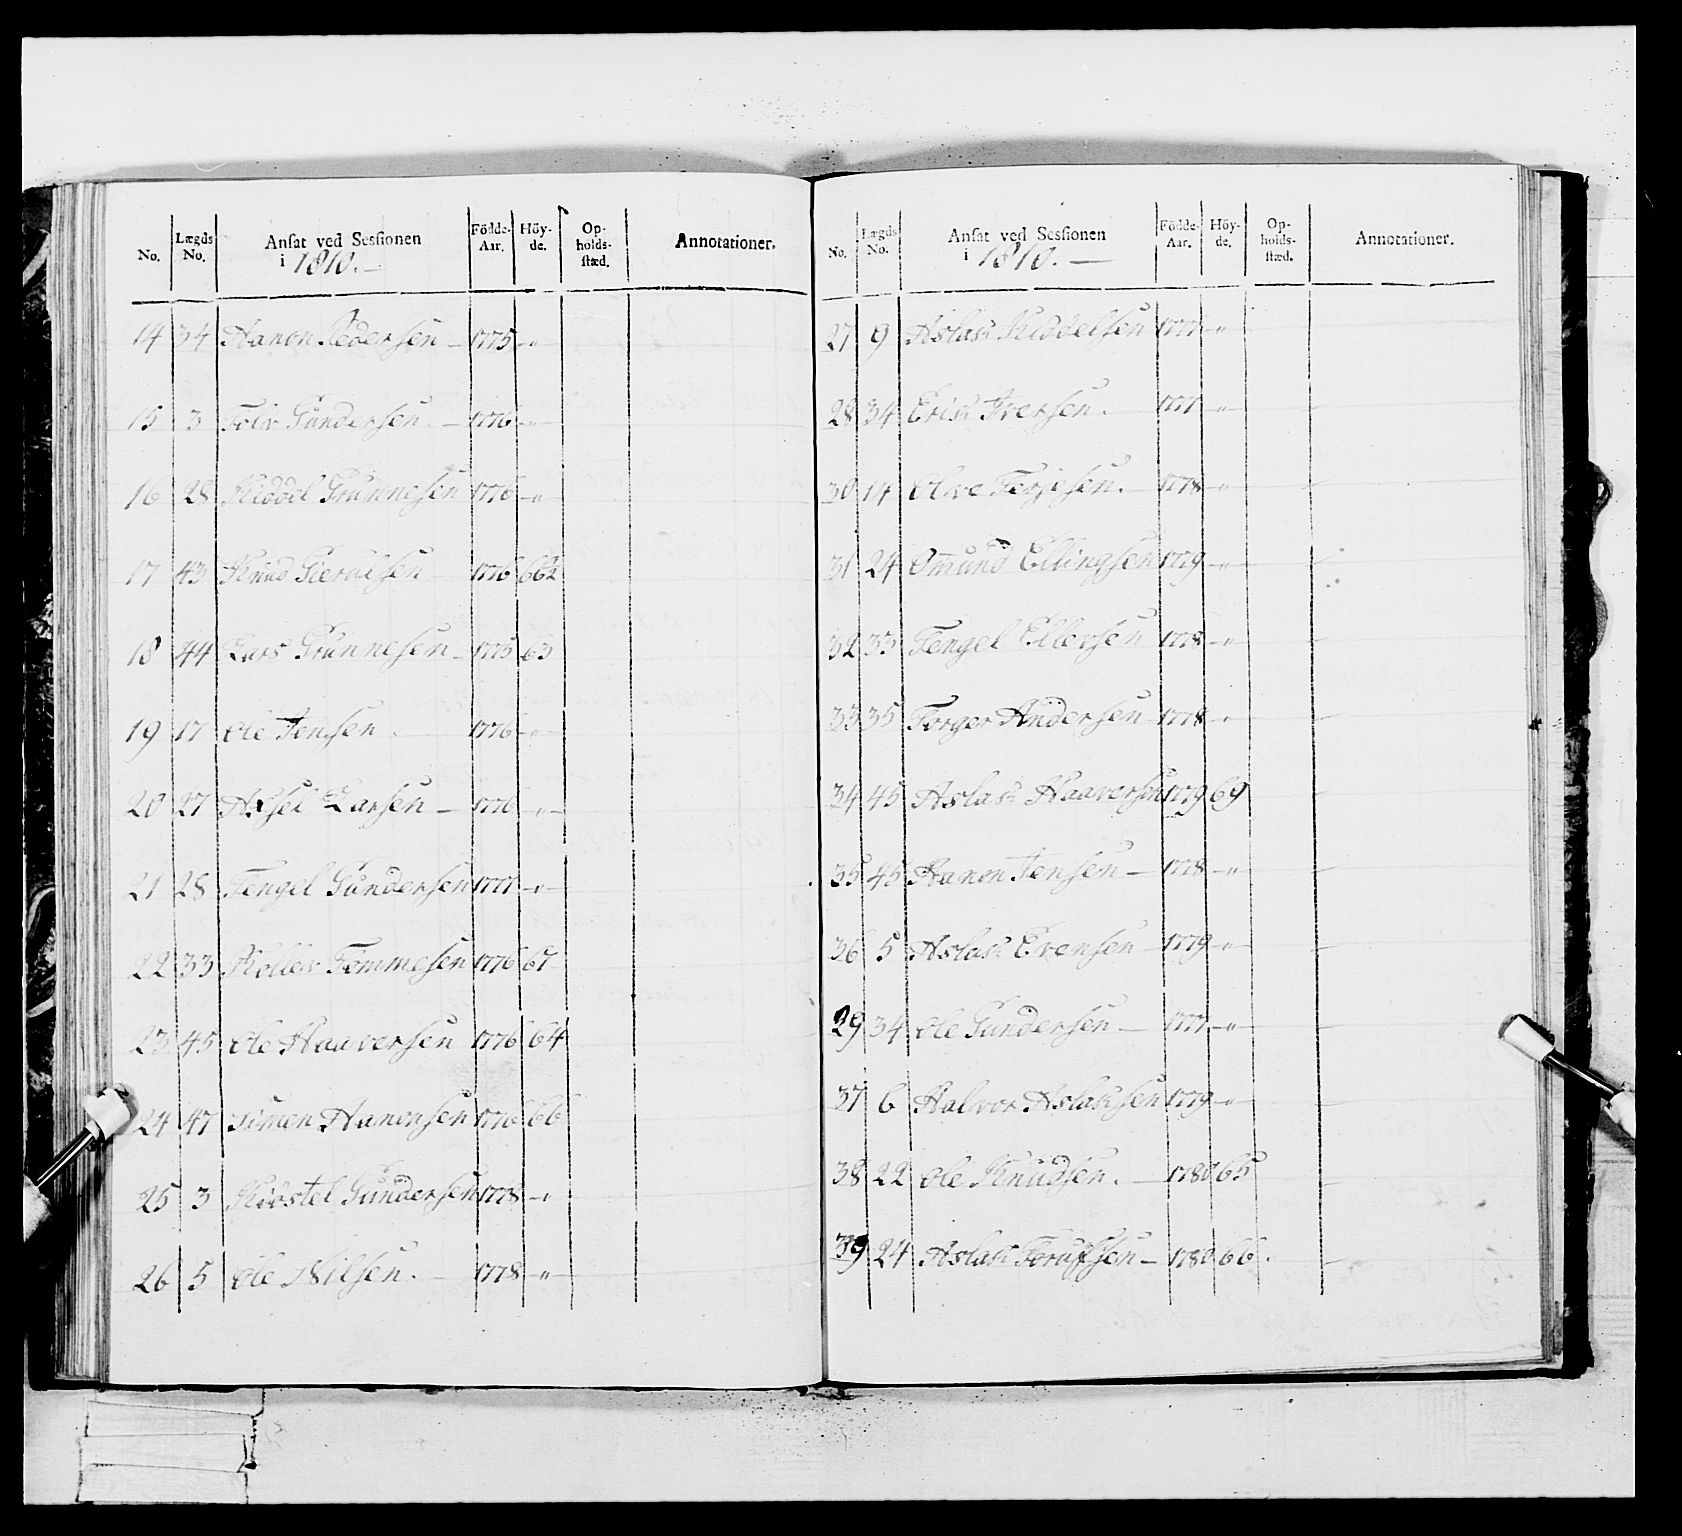 No. Lægds No. Ansat ved Sessionen i 1810. Födde-Aar. Höy-de. Op-holds-stæd. Annotationer.
14 34 Aanon Pedersen 1775 "
15 3 Tolv Gundersen 1776 "
16 28 Kiddel Grunnesen 1776 "
17 43 Knud 1776 66½
18 44 Lars Grunnesen 1775 63
19 17 Ole Jensen 1776 "
20 27 Axsel Larsen 1776 "
21 28 Tengel Gundersen 1777 "
22 33 Koller Tommesen 1776 67
23 45 Ole Haaversen 1776 64
24 47 Simen Aanonsen 1776 66
25 3 Kiøstel Gundersen 1778 "
26 5 Ole Nilsen. 1778 "
No. Lægds No. Ansat ved Sessionen i 1810. Födde-Aar. Höy-de. Op-holds-stæd. Annotationer.
27 9 Aslak Kiddelsen 1777 "
28 34 Erik Iversen. 1777 "
30 14 Olve Terjesen. 1778 "
31 24 Omund Ellingsen 1779 "
32 33 Tengel Ellersen 1778 "
33 35 Torger Andersen 1778 "
34 45 Aslak Haaversen 1779 69
35 45 Aanon Jensen 1778 "
36 5 Aslak Evensen 1779 "
29 34 Ole Gundersen 1777 "
37 6 Halvor Aslaksen 1779 "
38 22 Ole Knudsen. 1780 65
39 24 Aslak 1780 66.